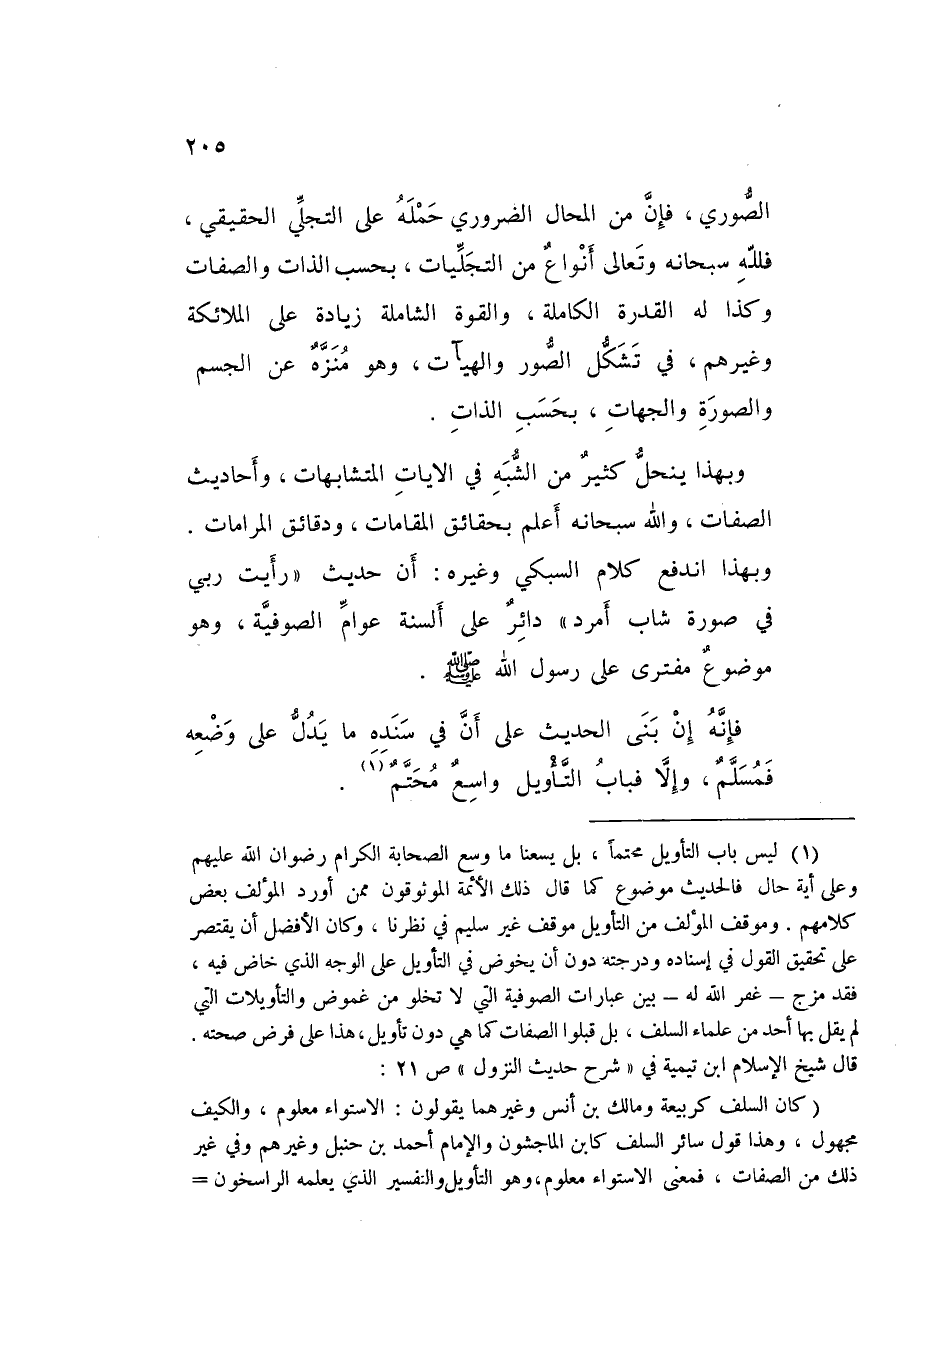 ٢٠٥
الصُّوري ، فإنَّ من المحال الضروري حَمْلَهُ على التجلِّي الحقيقي ،
فللّهِ سبحانه وتَعالى أَنْواعٌ من التجَلِّيات ، بحسب الذات والصفات
وكذا له القدرة الكاملة ، والقوة الشاملة زيادة على الملائكة
وغيرهم ، في تَشَكُّل الصُّور والهيآت ، وهو مُنَزَّهٌ عن الجسم
والصورَةِ والجهاتِ ، بحَسَبِ الذاتِ .
وبهذا ينحلُّ كثيرٌ من الشُّبَهِ في الاياتِ المتشابهات ، وأَحاديث
الصفات ، والله سبحانه أَعلم بحقائق المقامات ، ودقائق المرامات .
وبهذا اندفع كلام السبكي وغيره : أَن حديث « رأَيت ربي
في صورة شاب أَمرد » دائِرٌ على أَلسنة عوامِّ الصوفيَّة ، وهو
موضوعٌ مفترى على رسول الله ﷺ .
فإنَّهُ إنْ بَنَى الحديث على أَنَّ في سَنَدِهِ ما يَدُلُّ على وَضْعِه
فَمُسَلَّمٌ ، وإلَّا فبابُ التَّأْويل واسِعٌ مُحَتَّمٌ (١) .
(١) ليس باب التأويل محتماً ، بل يسعنا ما وسع الصحابة الكرام رضوان الله عليهم
وعلى أية حال فالحديث موضوع كما قال ذلك الأئمة الموثوقون ممن أورد المؤلف بعض
كلامهم . وموقف المؤلف من التأويل موقف غير سليم في نظرنا ، وكان الأفضل أن يقتصر
على تحقيق القول في إسناده ودرجته دون أن يخوض في التأويل على الوجه الذي خاض فيه ،
فقد مزج – غفر الله له – بين عبارات الصوفية التي لا تخلو من غموض والتأويلات التي
لم يقل بها أحد من علماء السلف ، بل قبلوا الصفات كما هي دون تأويل ، هذا على فرض صحته .
قال شيخ الإسلام ابن تيمية في « شرح حديث النزول » ص ٢١ :
( كان السلف كربيعة ومالك بن أنس وغيرهما يقولون : الاستواء معلوم ، والكيف
مجهول ، وهذا قول سائر السلف كابن الماجشون والإمام أحمد بن حنبل وغيرهم وفي غير
ذلك من الصفات ، فمعنى الاستواء معلوم ، وهو التأويل والتفسير الذي يعلمه الراسخون =